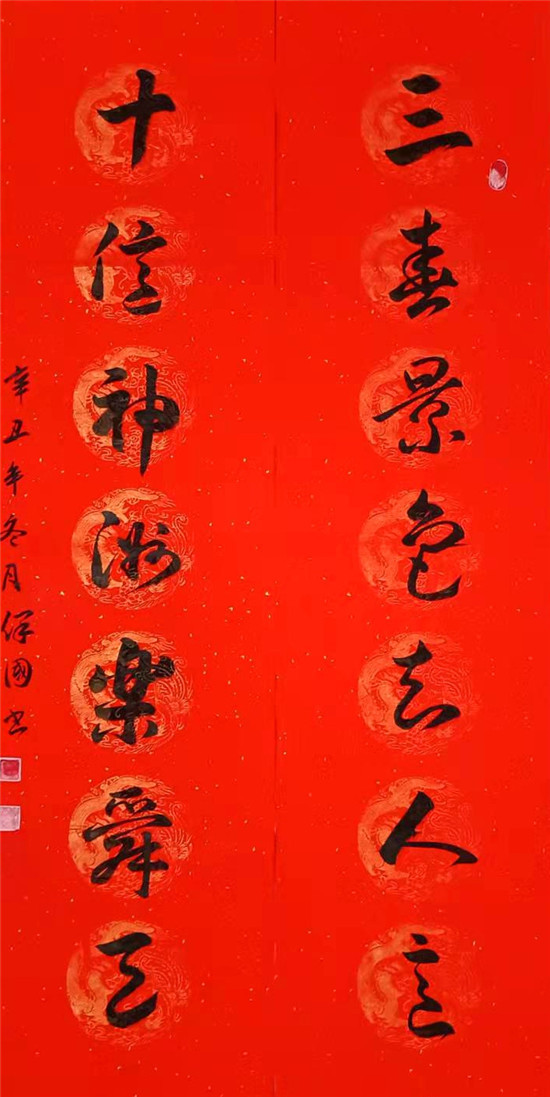 三春景色人意
十億神州樂舜天
辛丑年冬月保國書